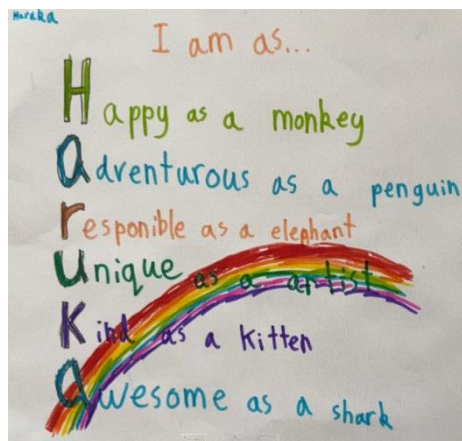 Haruka
I am as...
Happy as a monkey
adventurous as a penguin
responible as a elephant
unique as a artist
Kind as a Kitten
awesome as a shark